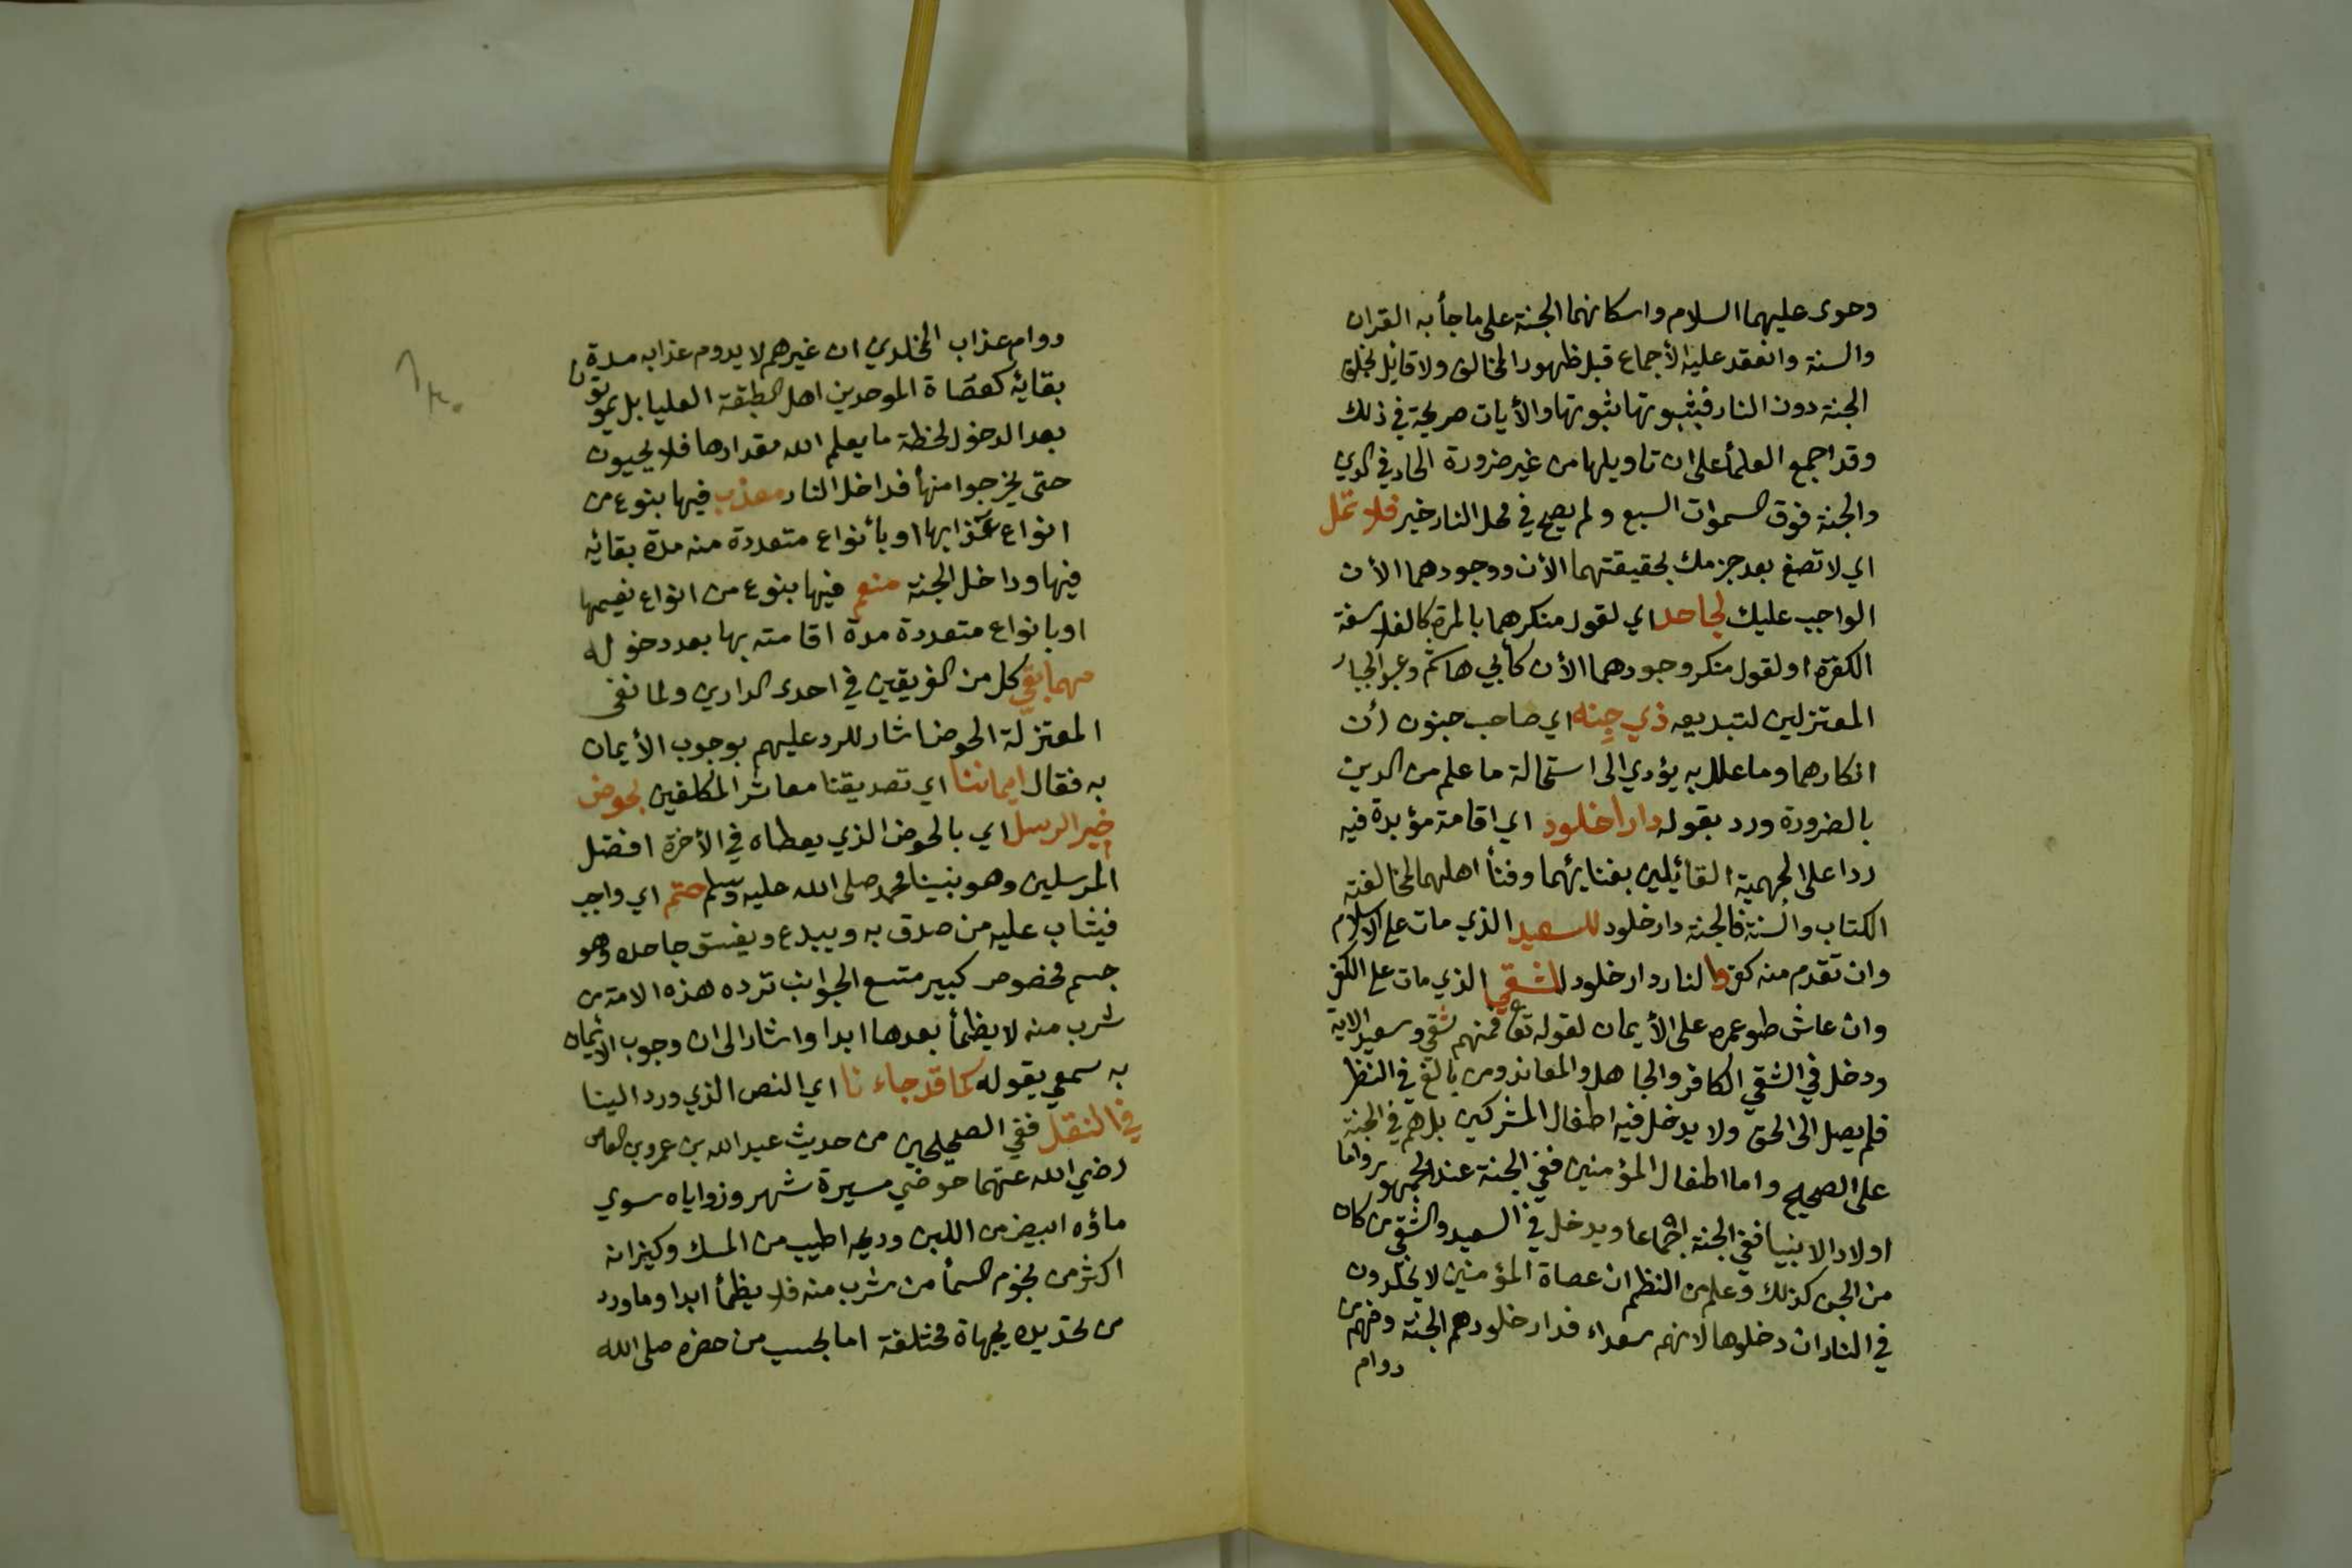 وحوى عليهما السلام واسكانهما الجنة على ما جأ به القران
والسنة وانعقد عليه الأجماع قبل ظهور المخالف ولا قايل بخلق
الجنة دون النار فثبوتها ثبوتها والأيات صريحة في ذلك
وقد اجمع العلمأ على ان تاويلها من غير ضرورة الحاد في الدين
والجنة فوق السموات السبع ولم يصح في محل النار خبر فلا تمل
اي لا تصغ بعد جزمك بحقيقتهما الأن ووجودهما الأن
الواجب عليك لجاحد اي لقول منكرهما بالمرة كالفلاسفة
الكفرة او لقول منكر وجودهما الأن كأبي هاشم وعبد الجبار
المعتزلين لتبديعه ذي جِنه اي صاحب جنون لأن
انكارهما وما علل به يؤدي الى استحالة ما علم من الدين
بالضرورة ورد بقوله دارا خلود اي اقامة مؤبدة فيه
ردا على الجهمية القائيلين بفنايئهما وفنأ اهلهما لمخالفته
الكتاب والسنة فالجنة دار خلود للسعيد الذي مات على الاسلام
وان تقدم منه كفر والنار دار خلود للشقي الذي مات على الكفر
وان عاش طو عمره على الأيمان لقوله تعا فمنهم شقي وسعيد الاية
ودخل في الشقي الكافر والجاهل والمعاند ومن بالغ في النظر
فلم يصل الى الحق ولا يدخل فيه اطفال المشركين بل هم في الجنة
على الصحيح واما اطفال المؤمنين ففي الجنة عند الجمهور واما
اولاد الانبيا ففي الجنة اجماعا ويدخل في السعيد والشقي من كان
من الجن كذلك وعلم من النظم ان عصاة المؤمنين لا يخلدون
في النار ان دخلوها لانهم سعداء فدار خلودهم الجنة وفهم من
دوام
دوام عذاب المخلدين ان غيرهم لا يدوم عذابه مدة
بقايئه كعصاة الموحدين اهل الطبقة العليا بل يموتون
بعد الدخول لحظة ما يعلم الله مقدارها فلا يحيون
حتى يخرجوا منها فداخل النار معذب فيها بنوع من
انواع عذابها او بأنواع متعددة منه مدة بقائيه
فيها وداخل الجنة منعم فيها بنوع من انواع نعيمها
او بانواع متعددة مدة اقامته بها بعد دخوله
مهما بقي كل من الفريقين في احدى الدارين ولما نفى
المعتزلة الحوض اشار للرد عليهم بوجوب الأيمان
به فقال ايماننا اي تصديقنا معاشر المكلفين بحوض
خير الرسل اي بالحوض الذي يعطاه في الأخرة افضل
المرسلين وهو نبينا محمد صلى الله عليه وسلم حتم اي واجب
فيثاب عليه من صدق به ويبدع ويفسق جاحده وهو
جسم مخصوص كبير متسع الجوانب ترده هذه الامة من
شرب منه لا يظمأ بعدها ابدا واشار الى ان وجوب الأيمان
به سمعي بقوله كما قد جاء نا اي النص الذي ورد الينا
في النقل ففي الصحيحين من حديث عبد الله بن عمرو بن العاص
رضي الله عنهما حوضي مسيرة شهر وزواياه سوي
ماؤه ابيض من اللبن وريحه اطيب من المسك وكيزانه
اكثر من نجوم السمأ من شرب منه فلا يظمأ ابدا وما ورد
من تحديده بجهاة مختلفة اما بحسب من حضره صلى الله